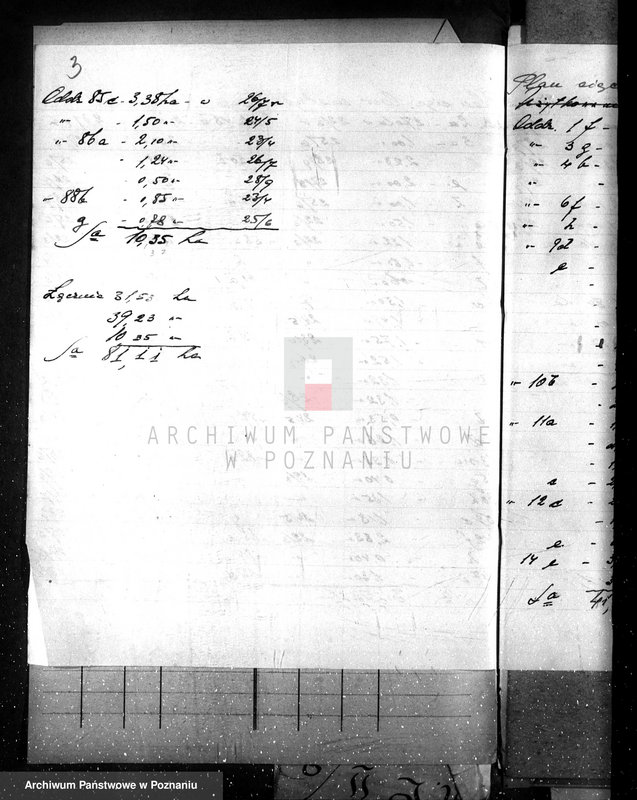 3
Oddz. 85c - 3,38 ha - 26/7
" - 1,50 " 24/5
" 86a - 2,10 " 23/4
- 1,24 " 26/7
- 0,50 " 28/9
" 88b - 0,85 " 23/4
g - 0,78 " 25/6
Sa 10,35 ha
Łącznie 31,53 ha
39,23 "
10,35 "
Sa 81,11 ha
Plan
Oddz. 1 f -
" 3 g -
" 4 b -
" -
" 6 f -
" h -
" 9d -
e -
" 10b -
" 11a -
c -
" 12c -
e -
14 e -
Sa 41,
ARCHIWUM PAŃSTWOWE
W POZNANIU
Archiwum Państwowe w Poznaniu